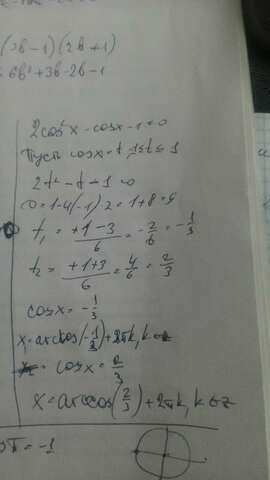 (3b-1)(2b+1)
6b²+3b-2b-1
2cos²x-cosx-1=0
Пусть cosx=t, 1≤t≤1
2t²-t-1=0
D=1-4(-1)2=1+8=9
t₁=+1-3/6=-2/6=-1/3
t₂=+1+3/6=4/6=2/3
cosx=-1/3
x₁=arccos(-1/3)+2πk, k∈z
cosx=2/3
x=arccos(2/3)+2πk, k∈z
=-1